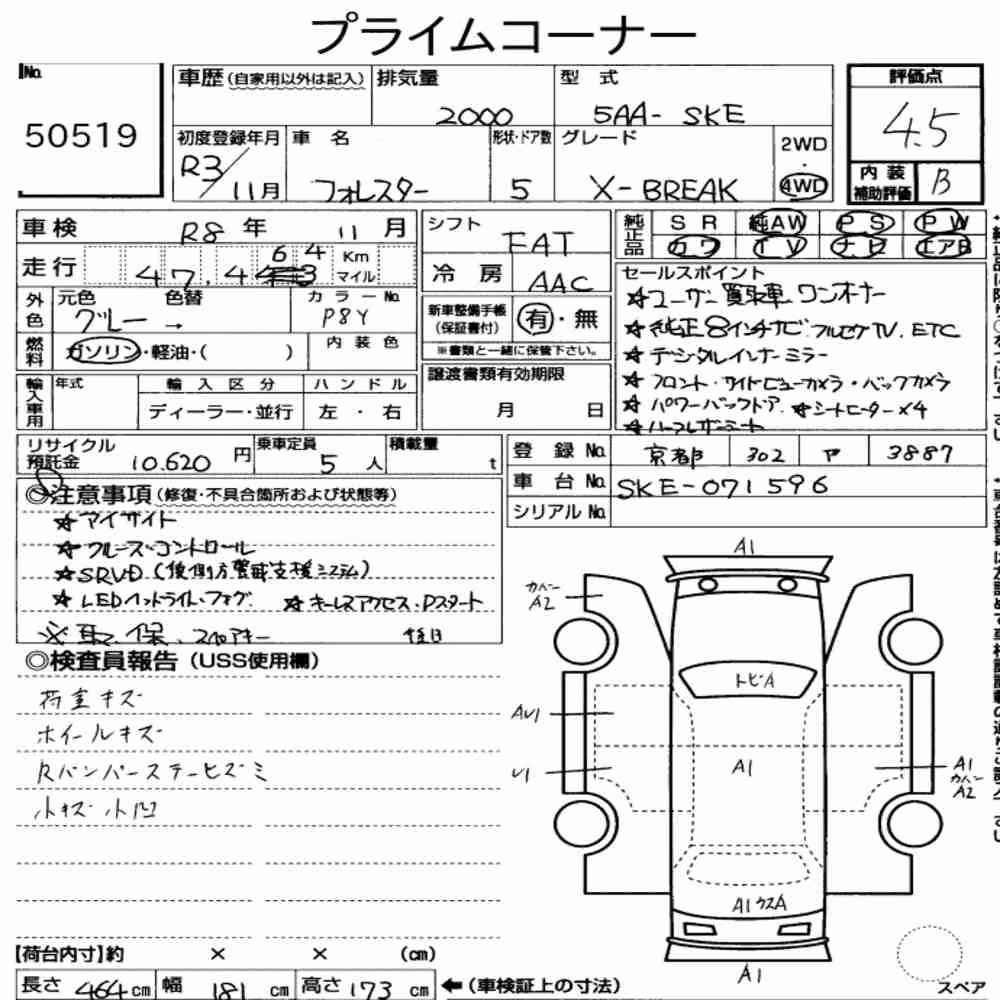 プライムコーナー
No. 50519
車歴（自家用以外は記入） 排気量 2000 型式 5AA- SKE
初度登録年月 R3/11月 車名 フォレスター 形状・ドア数 5 グレード X-BREAK 2WD・4WD
評価点 4.5
内装補助評価 B
車検 R8年 11月
走行 47,464 Km マイル
外色 元色 グレー → 色替 カラーNo. P8Y
燃料 ガソリン・軽油・( ) 内装色
輸入車用 年式 輸入区分 ディーラー・並行 ハンドル 左・右
シフト FAT
冷房 AAC
新車整備手帳（保証書付） 有・無
※書類と一緒に保管下さい。
譲渡書類有効期限 月 日
純正品 SR 純AW PS PW
カワ TV ナビ エアB
セールスポイント
☆ユーザー買取車 ワンオーナー
☆純正8インチナビ フルセグTV. ETC
☆デジタルインナーミラー
☆フロント・サイドビューカメラ・バックカメラ
☆パワーバックドア ☆シートヒーター×4
☆ハーフレザーシート
リサイクル預託金 10.620円 乗車定員 5人 積載量 t
登録No. 京都 302 ヤ 3887
車台No. SKE-071596
シリアルNo.
◎注意事項（修復・不具合箇所および状態等）
☆アイサイト
☆クルーズコントロール
☆SRVD（後側方警戒支援システム）
☆LEDヘッドライト・フォグ ☆キーレスアクセス・Pスタート
※取、保、スペアキー 後日
◎検査員報告（USS使用欄）
荷室キズ
ホイールキズ
Rバンパーステーヒズミ
小キズ小凹
A1
カバー A2
トビA
AU1
U1
A1
A1 カバー A2
A1 クスA
A1
スペア
【荷台内寸】約 × × （cm）
長さ 464cm 幅 181cm 高さ 173cm ←（車検証上の寸法）